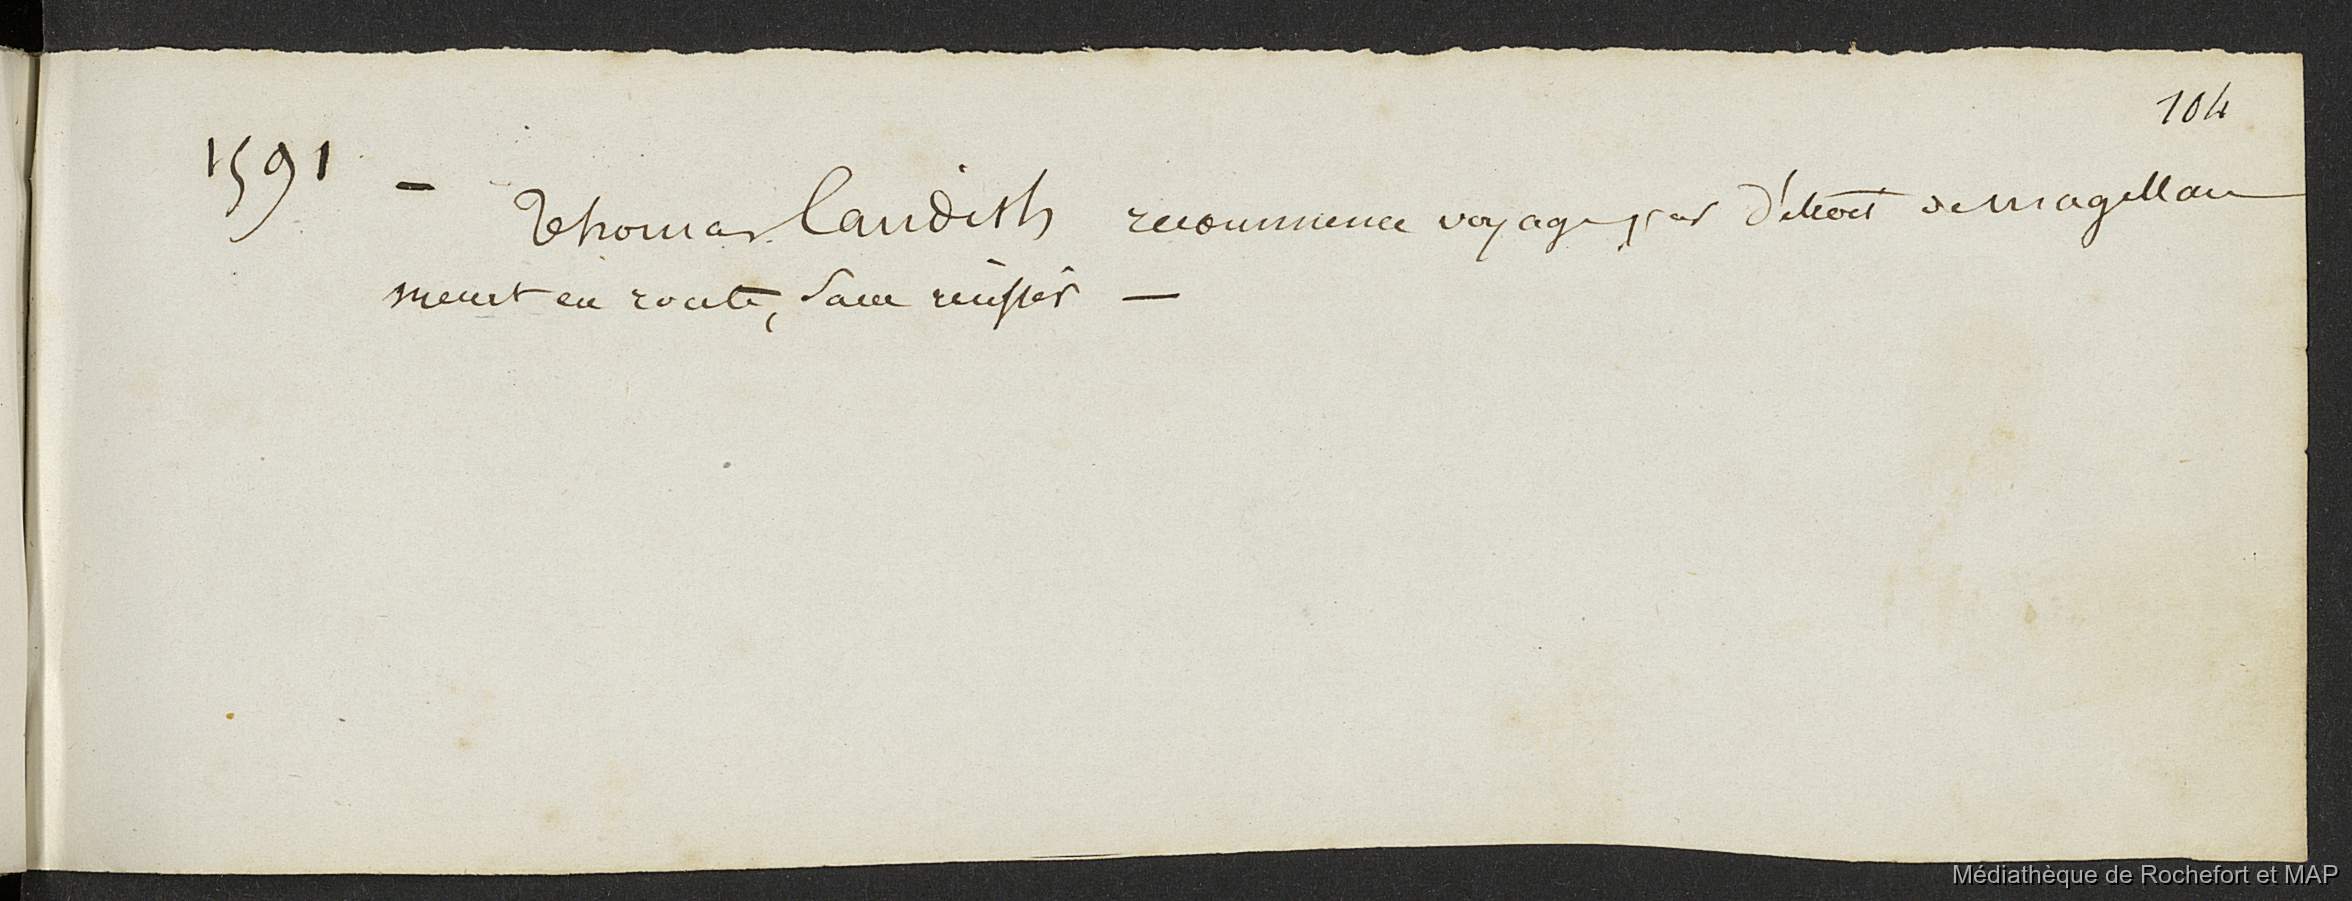 104
1591 — Thomas Candish recommence voyage par détroit de Magellan
meurt en route, sans réussir —
Médiathèque de Rochefort et MAP